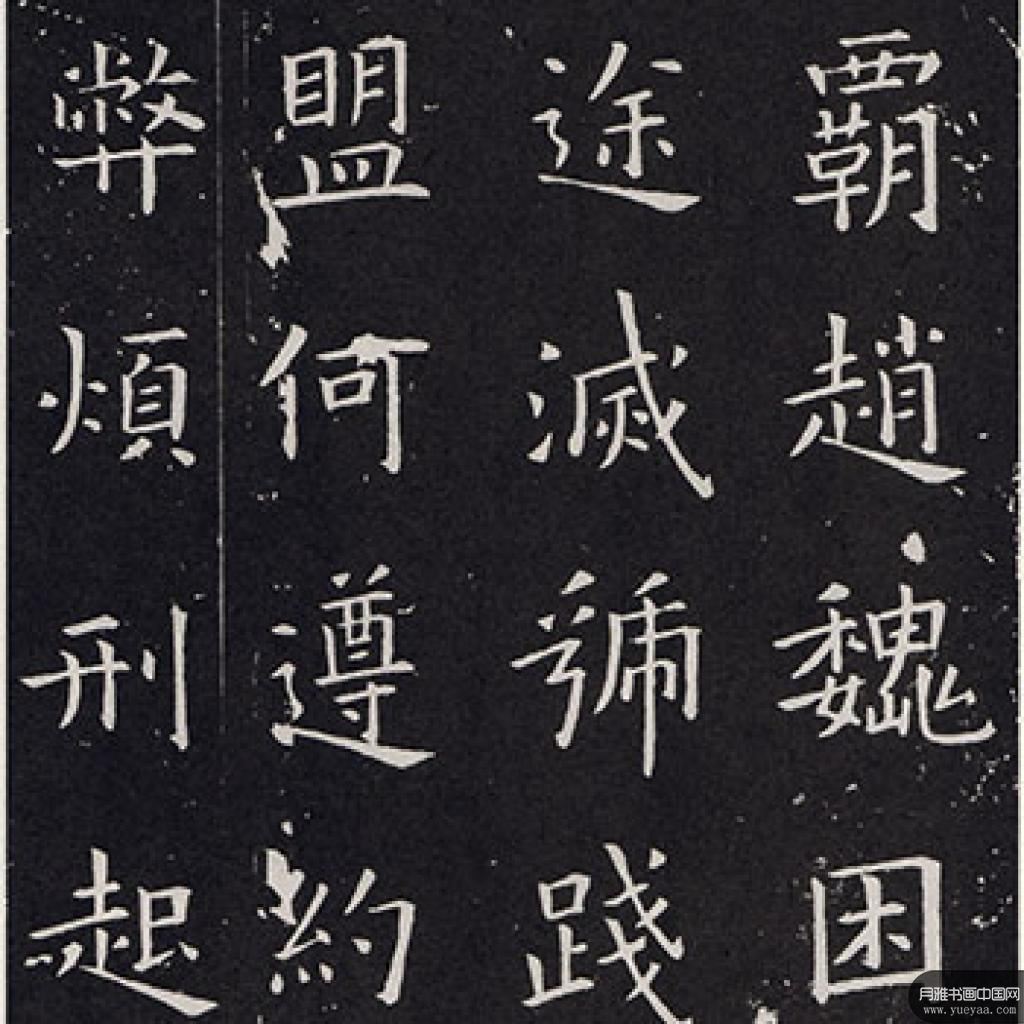 霸趙魏困
途滅虢踐
盟何遵約
弊煩刑起
月雅书画中国网
www.yueyaa.com